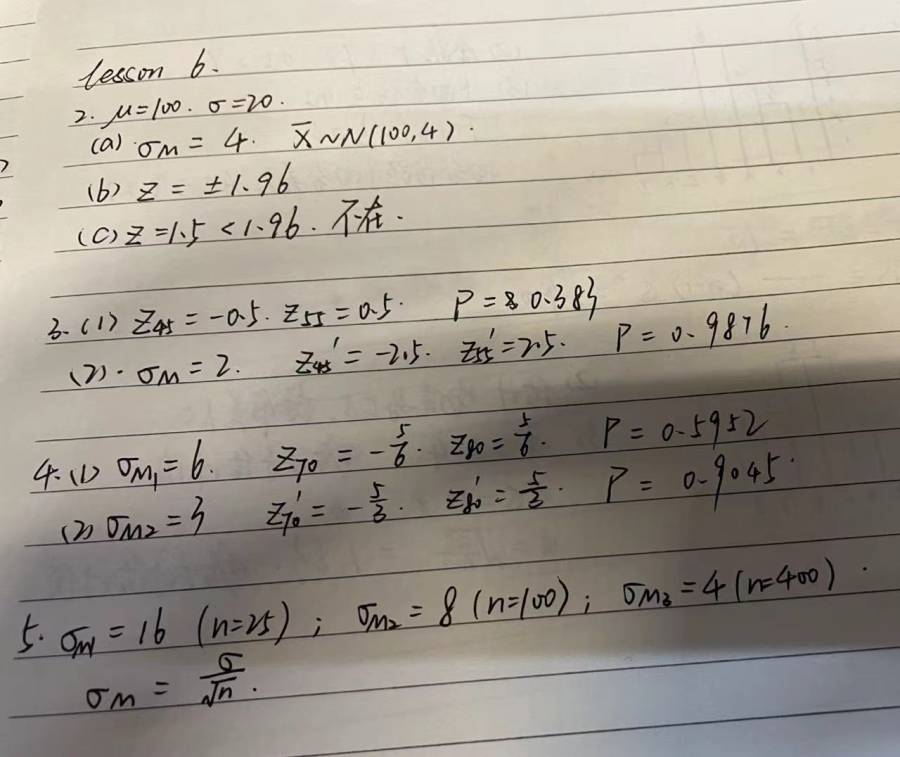 lesson 6.
2. μ=100. σ=20.
(a) σM = 4. X̄ ~N(100,4).
(b) Z = ±1.96
(c) Z=1.5 < 1.96. 不在.
3.(1) Z45 = -0.5. Z55 = 0.5. P = 0.383
(2). σM = 2. Z45' = -2.5. Z55' = 2.5. P = 0.9876.
4.(1) σM1 = 6. Z70 = -5/6. Z80 = 5/6. P = 0.5952
(2) σM2 = 3 Z70' = -5/3. Z80' = 5/3. P = 0.9045.
5. σM1 = 16 (n=25); σM2 = 8 (n=100); σM3 = 4 (n=400).
σM = σ/√n.